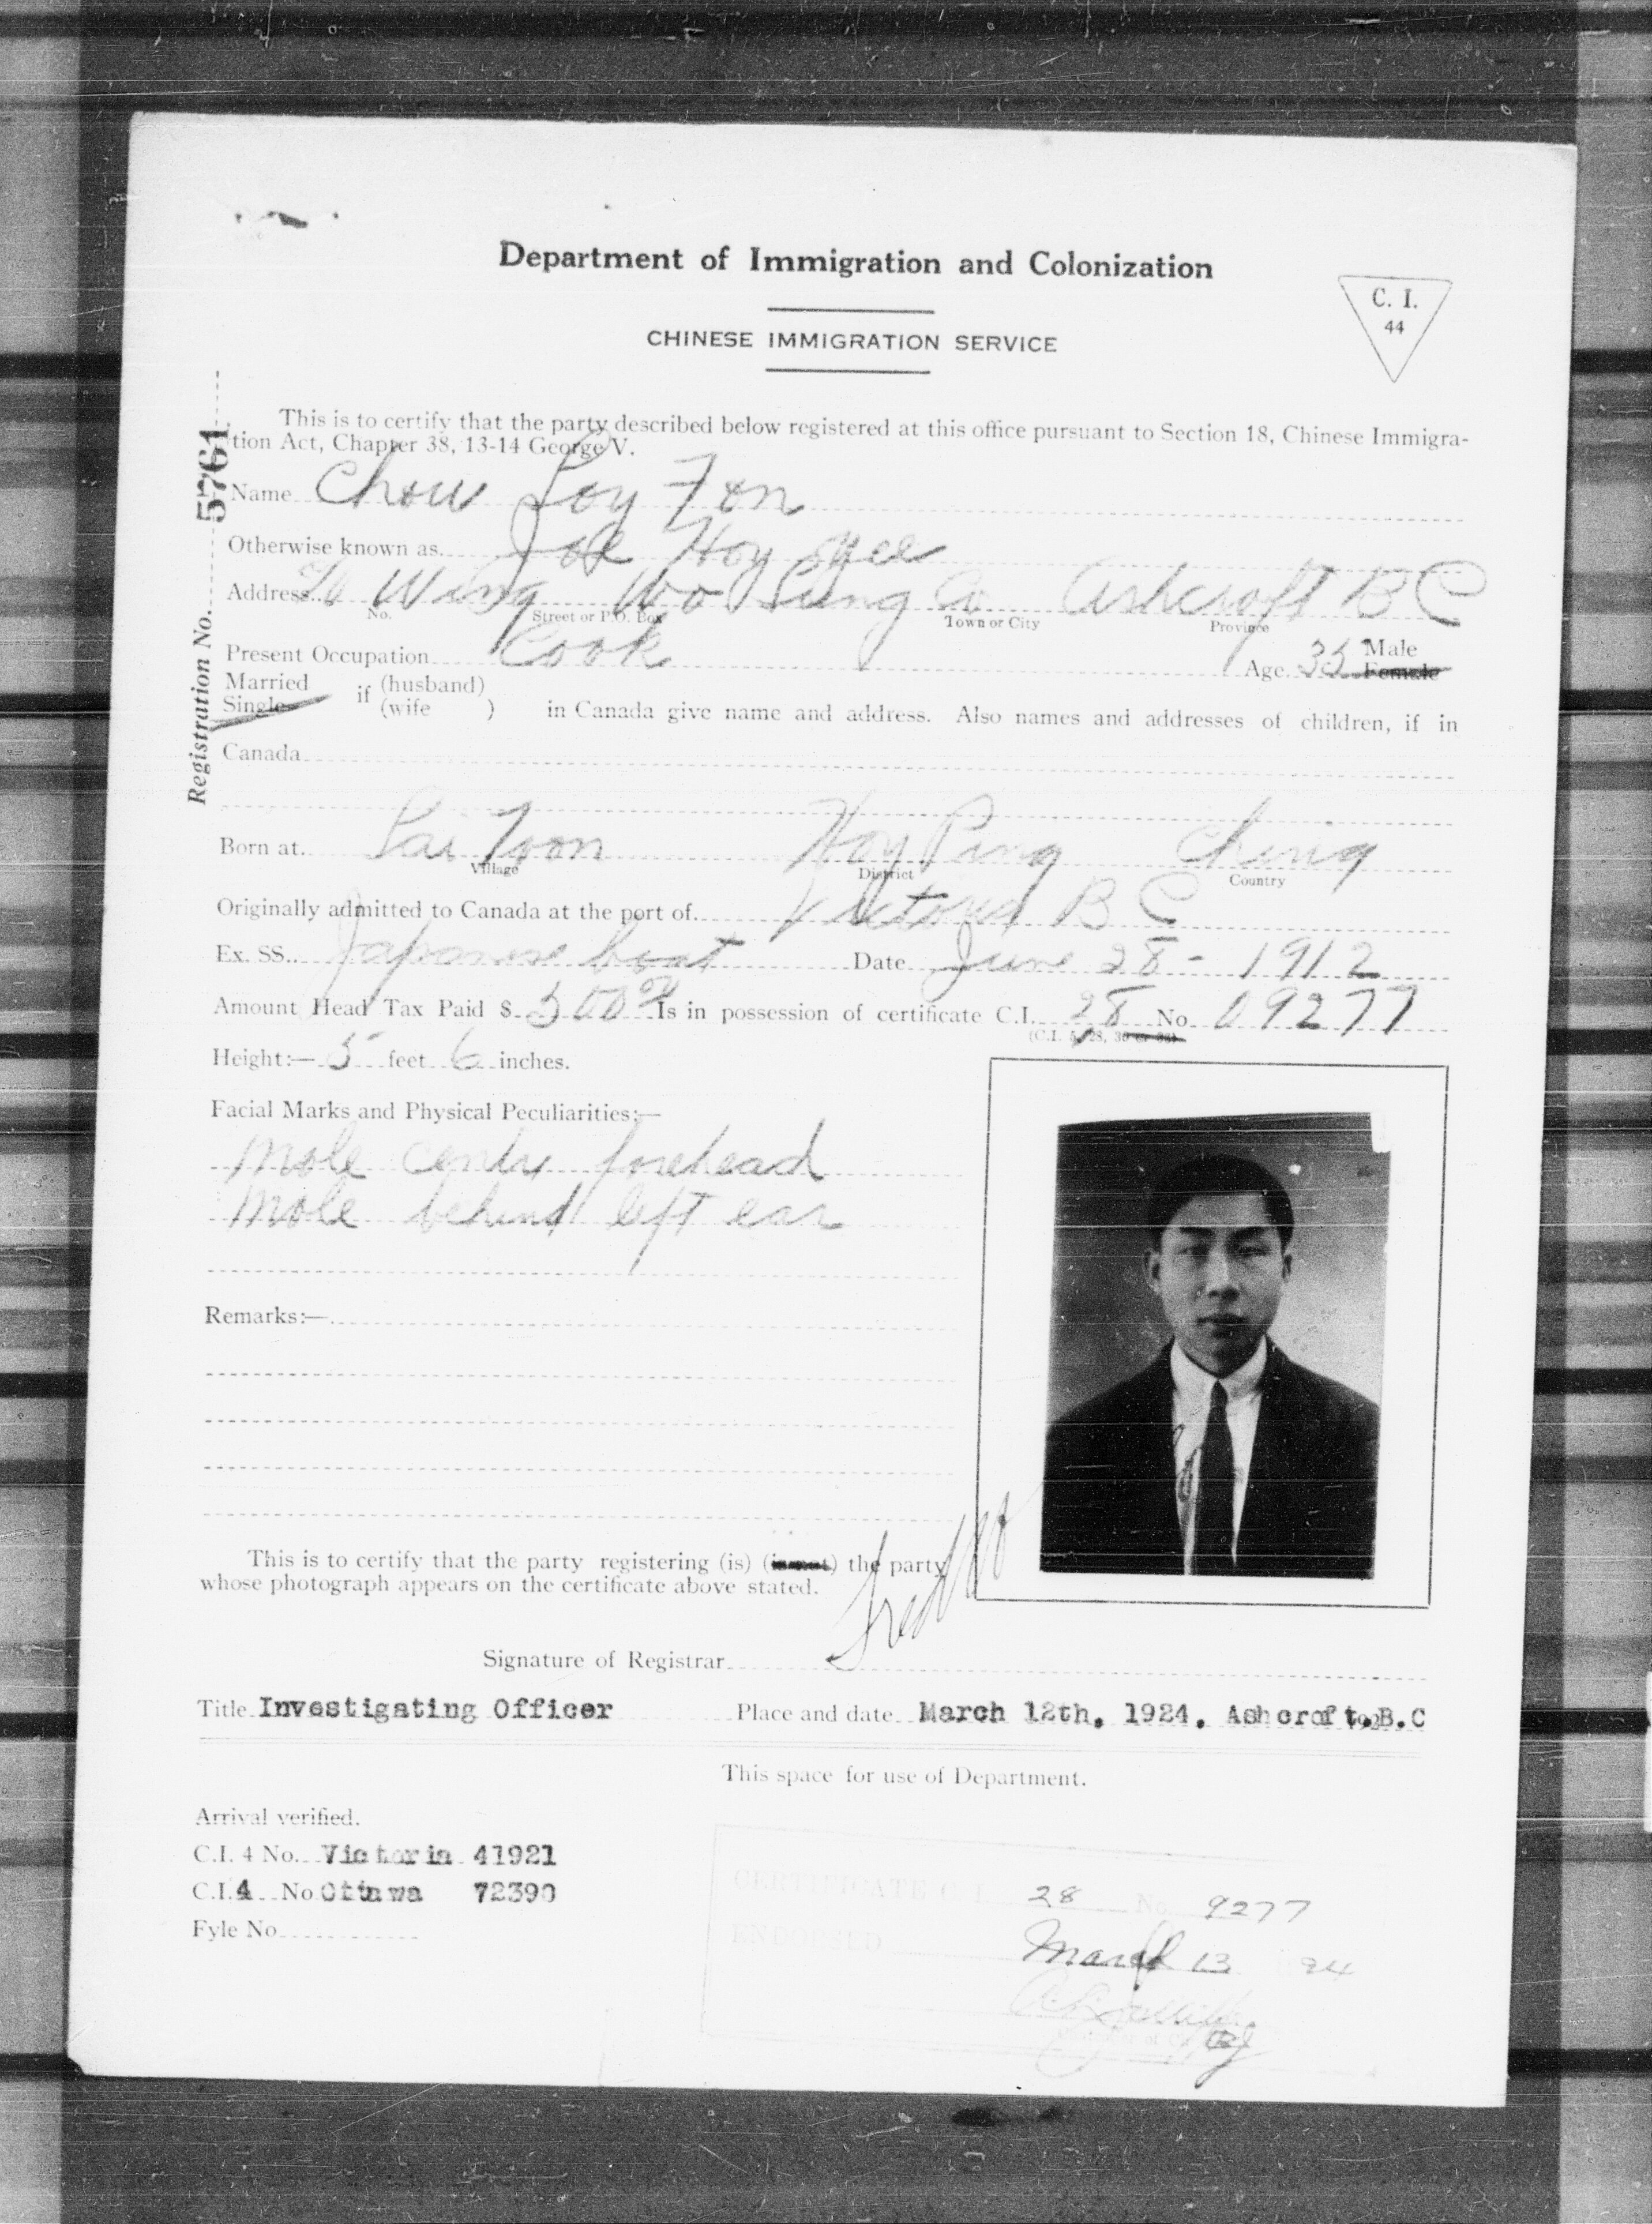 Department of Immigration and Colonization
CHINESE IMMIGRATION SERVICE
C. I.
44
Registration No. 5761
This is to certify that the party described below registered at this office pursuant to Section 18, Chinese Immigra-
tion Act, Chapter 38, 13-14 George V.
Name Chow Loy Fon
Otherwise known as Joe Hoy Yee
Address Wing Wo Lung Co Ashcroft B C
No. Street or P.O. Box Town or City Province
Present Occupation Cook Age 35 Male Female
Married
Single if (husband)
(wife ) in Canada give name and address. Also names and addresses of children, if in
Canada
Born at Lai Toon Hoy Ping China
Village District Country
Originally admitted to Canada at the port of Victoria B C
Ex. SS. Japanese boat Date June 28 - 1912
Amount Head Tax Paid $ 500 00 Is in possession of certificate C.I. 28 No 09277
(C.I. 5, 28, 30 or 36)
Height:— 5 feet 6 inches.
Facial Marks and Physical Peculiarities:—
Mole centre forehead
Mole behind left ear
Remarks:—
This is to certify that the party registering (is) (is not) the party
whose photograph appears on the certificate above stated.
Signature of Registrar
Title Investigating Officer Place and date March 12th, 1924, Ashcroft.B.C
This space for use of Department.
Arrival verified.
C.I. 4 No. Victoria 41921
C.I. 4 No Ottawa 72390
Fyle No
CERTIFICATE C.I. 28 No. 9277
ENDORSED March 13 24